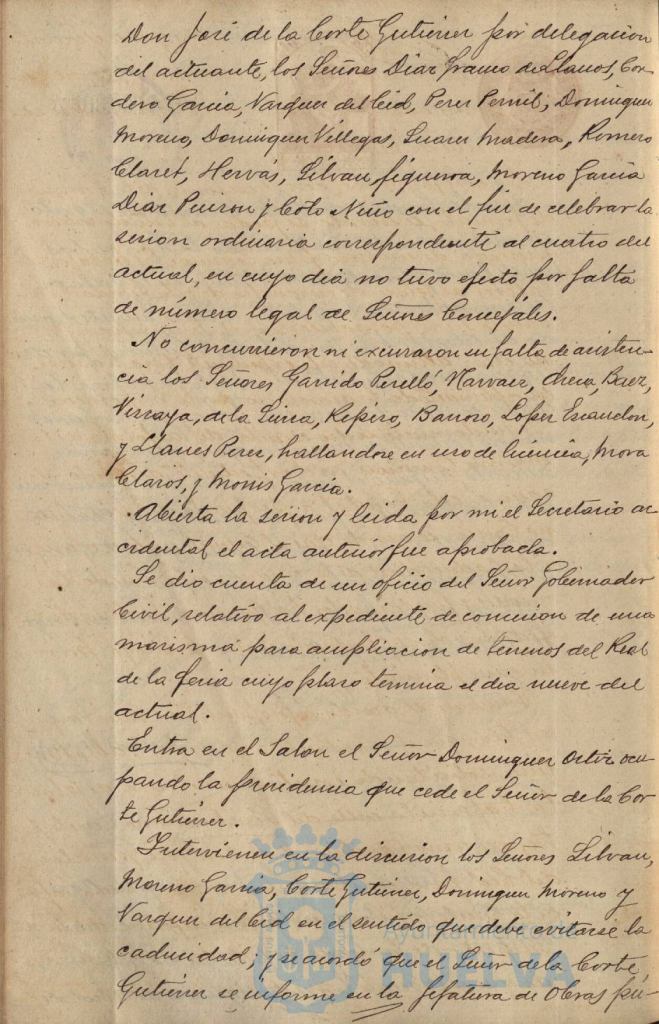 Don José de la Corte Gutierrez por delegacion
del actuante, los Señores Diaz Franco de Llanos, Cor-
dero Garcia, Vazquez del Cid, Perez Pernil, Dominguez
Moreno, Dominguez Villegas, Suarez Madera, Romero
Claret, Hervás, Silvan, Figueroa, Moreno Garcia
Diaz y Coto Niño con el fin de celebrar la
sesion ordinaria correspondiente al cuatro del
actual, en cuyo dia no tuvo efecto por falta
de número legal de Señores Concejales.
No concurrieron ni excusaron su falta de asisten-
cia los Señores Garrido Perelló, Narvaez, Baez,
Vizcaya, de la Sierra, Repiso, Barroso, Lopez Escandon,
y Llanes Perez, hallandose en uso de licencia, Mora
Claros, y Monis Garcia.
Abierta la sesion y leida por mi el Secretario ac-
cidental el acta anterior fue aprobada.
Se dio cuenta de un oficio del Señor Gobernador
Civil, relativo al expediente de concesion de una
marisma para ampliacion de terrenos del Real
de la feria cuyo plazo termina el dia nueve del
actual.
Entra en el Salon el Señor Dominguez Ortiz ocu-
pando la presidencia que cede el Señor de la Cor-
te Gutierrez.
Intervienen en la discusion los Señores Silvan,
Moreno Garcia, Corte Gutierrez, Dominguez Moreno y
Vazquez del Cid en el sentido que debe evitarse la
caducidad; y se acordó que el Señor de la Corte
Gutierrez se informe en la Jefatura de Obras pú-
Ayuntamiento de
HUELVA